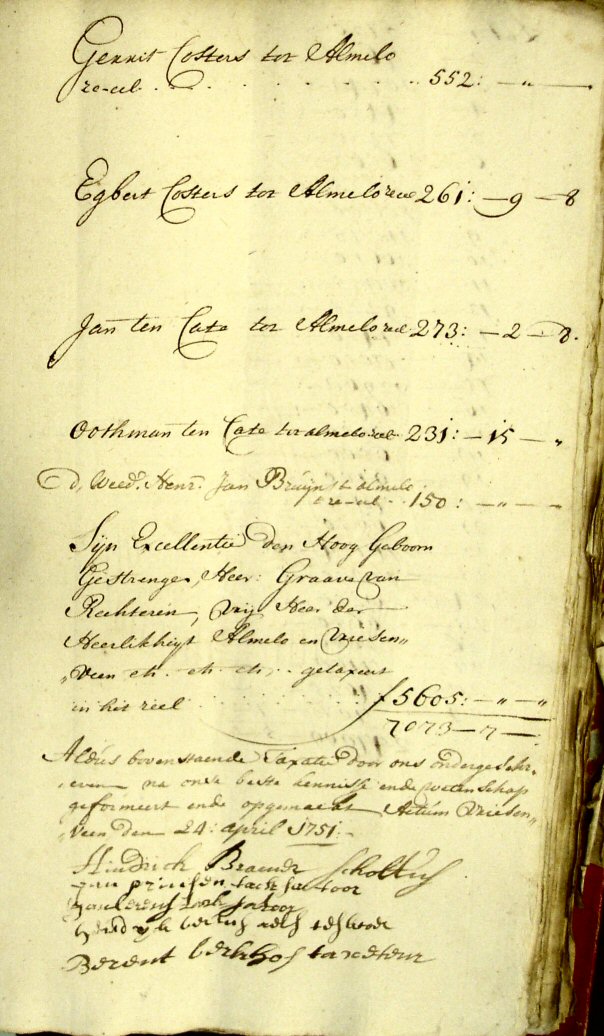 Gerrit Costers tot Almelo
re-eel . . . . . . . . 552: — „ —
Egbert Costers tot Almelo reel 261: — 9 — 8
Jan ten Cate tot Almelo reel 273: — 2 — 8.
Oothman ten Cate tot almelo reel 231: — 15 — „
d, Weed. Henr. Jan Bruijns t. almelo
re-eel . . 150: — „ —
Sijn Excellentie den Hoog Geboorn
Gestrenge, Heer: Graave van
Rechteren, Vrij Heer der
Heerlikheijt Almelo en Vriesen„
„Veen etc. etc. etc. getaxeert
in het reel . . . . . . . f 5605: — „ — „
7073 — 7 —
Aldus bovenstaende Taxatie door ons ondergeschr„
„even, na onse beste kennisse ende wetenschap
geformeert ende opgemaeckt Actum Vriesen„
„Veen den 24: april 1751:-
Hindrick Bramer scholtus
Jan prinsen
Berent berkhof taxeteur